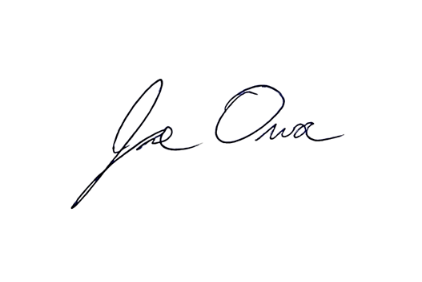 Joe Owa